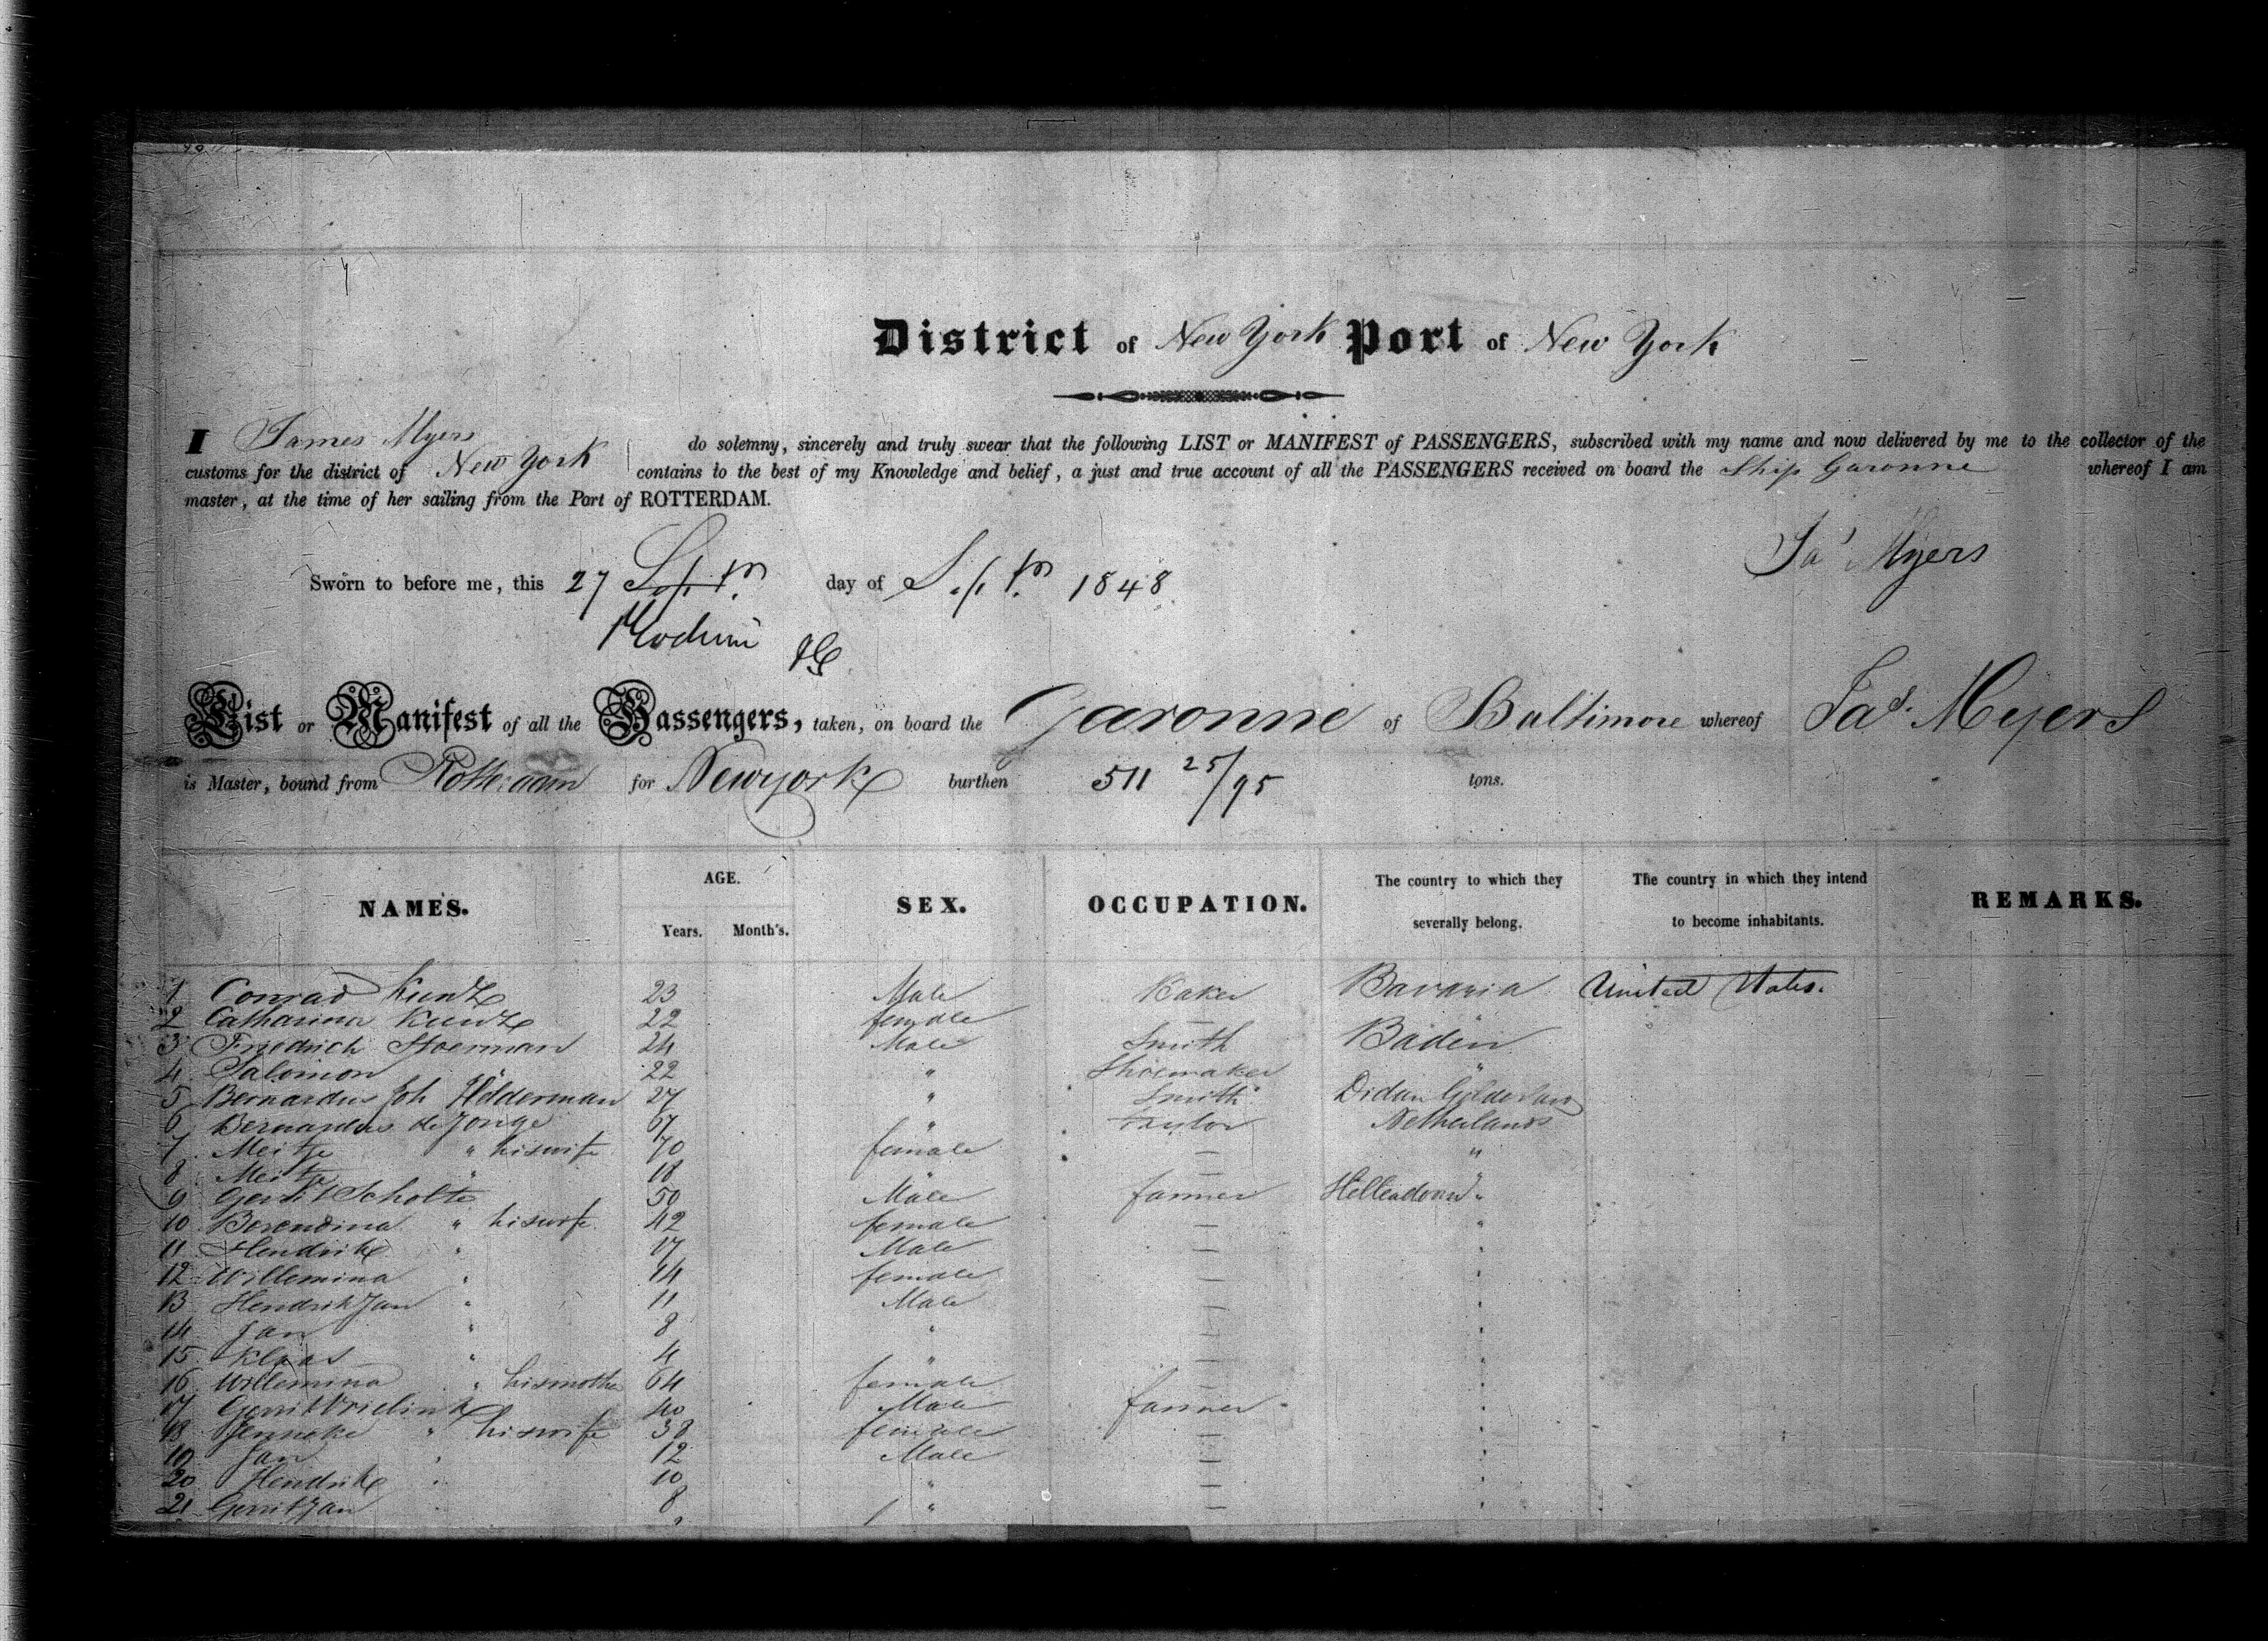 District of New York Port of New York
I James Myers do solemny, sincerely and truly swear that the following LIST or MANIFEST of PASSENGERS, subscribed with my name and now delivered by me to the collector of the
customs for the district of New York contains to the best of my Knowledge and belief, a just and true account of all the PASSENGERS received on board the Ship Garonne whereof I am
master, at the time of her sailing from the Port of ROTTERDAM.
Jas Myers
Sworn to before me, this 27 Septr day of Septr 1848
List or Manifest of all the Passengers, taken, on board the Garonne of Baltimore whereof Jas. Myers
is Master, bound from Rotterdam for Newyork burthen 511 25/95 tons.
NAMES. AGE. Years. Month's. SEX. OCCUPATION. The country to which they severally belong. The country in which they intend to become inhabitants. REMARKS.
1 Conrad Kuntz 23 Male Baker Bavaria United States.
2 Catharina Kuntz 22 female —
3 Friedrich Hoerman 24 Male Smith Baden
4 Salomon " 22 " Shoemaker "
5 Bernardus Joh Hilderman 27 " Smith Didam Gelderland
6 Bernardus de Jonge 67 " Taylor Netherlands
7 Meitje " his wife 70 female — "
8 Meitje " 18 " — "
9 Gerrit Scholte 50 Male farmer Hellendoorn "
10 Berendina " his wife 42 female — "
11 Hendrik " 17 Male — "
12 Willemina " 14 female — "
13 Hendrik Jan " 11 Male — "
14 Jan " 8 " — "
15 Klaas " 4 " — "
16 Willemina " his mother 64 female — "
17 Gerrit Vrielink 40 Male farmer "
18 Jenneke " his wife 38 female — "
19 Jan " 12 Male — "
20 Hendrik " 10 " — "
21 Gerrit Jan " 8 " — "